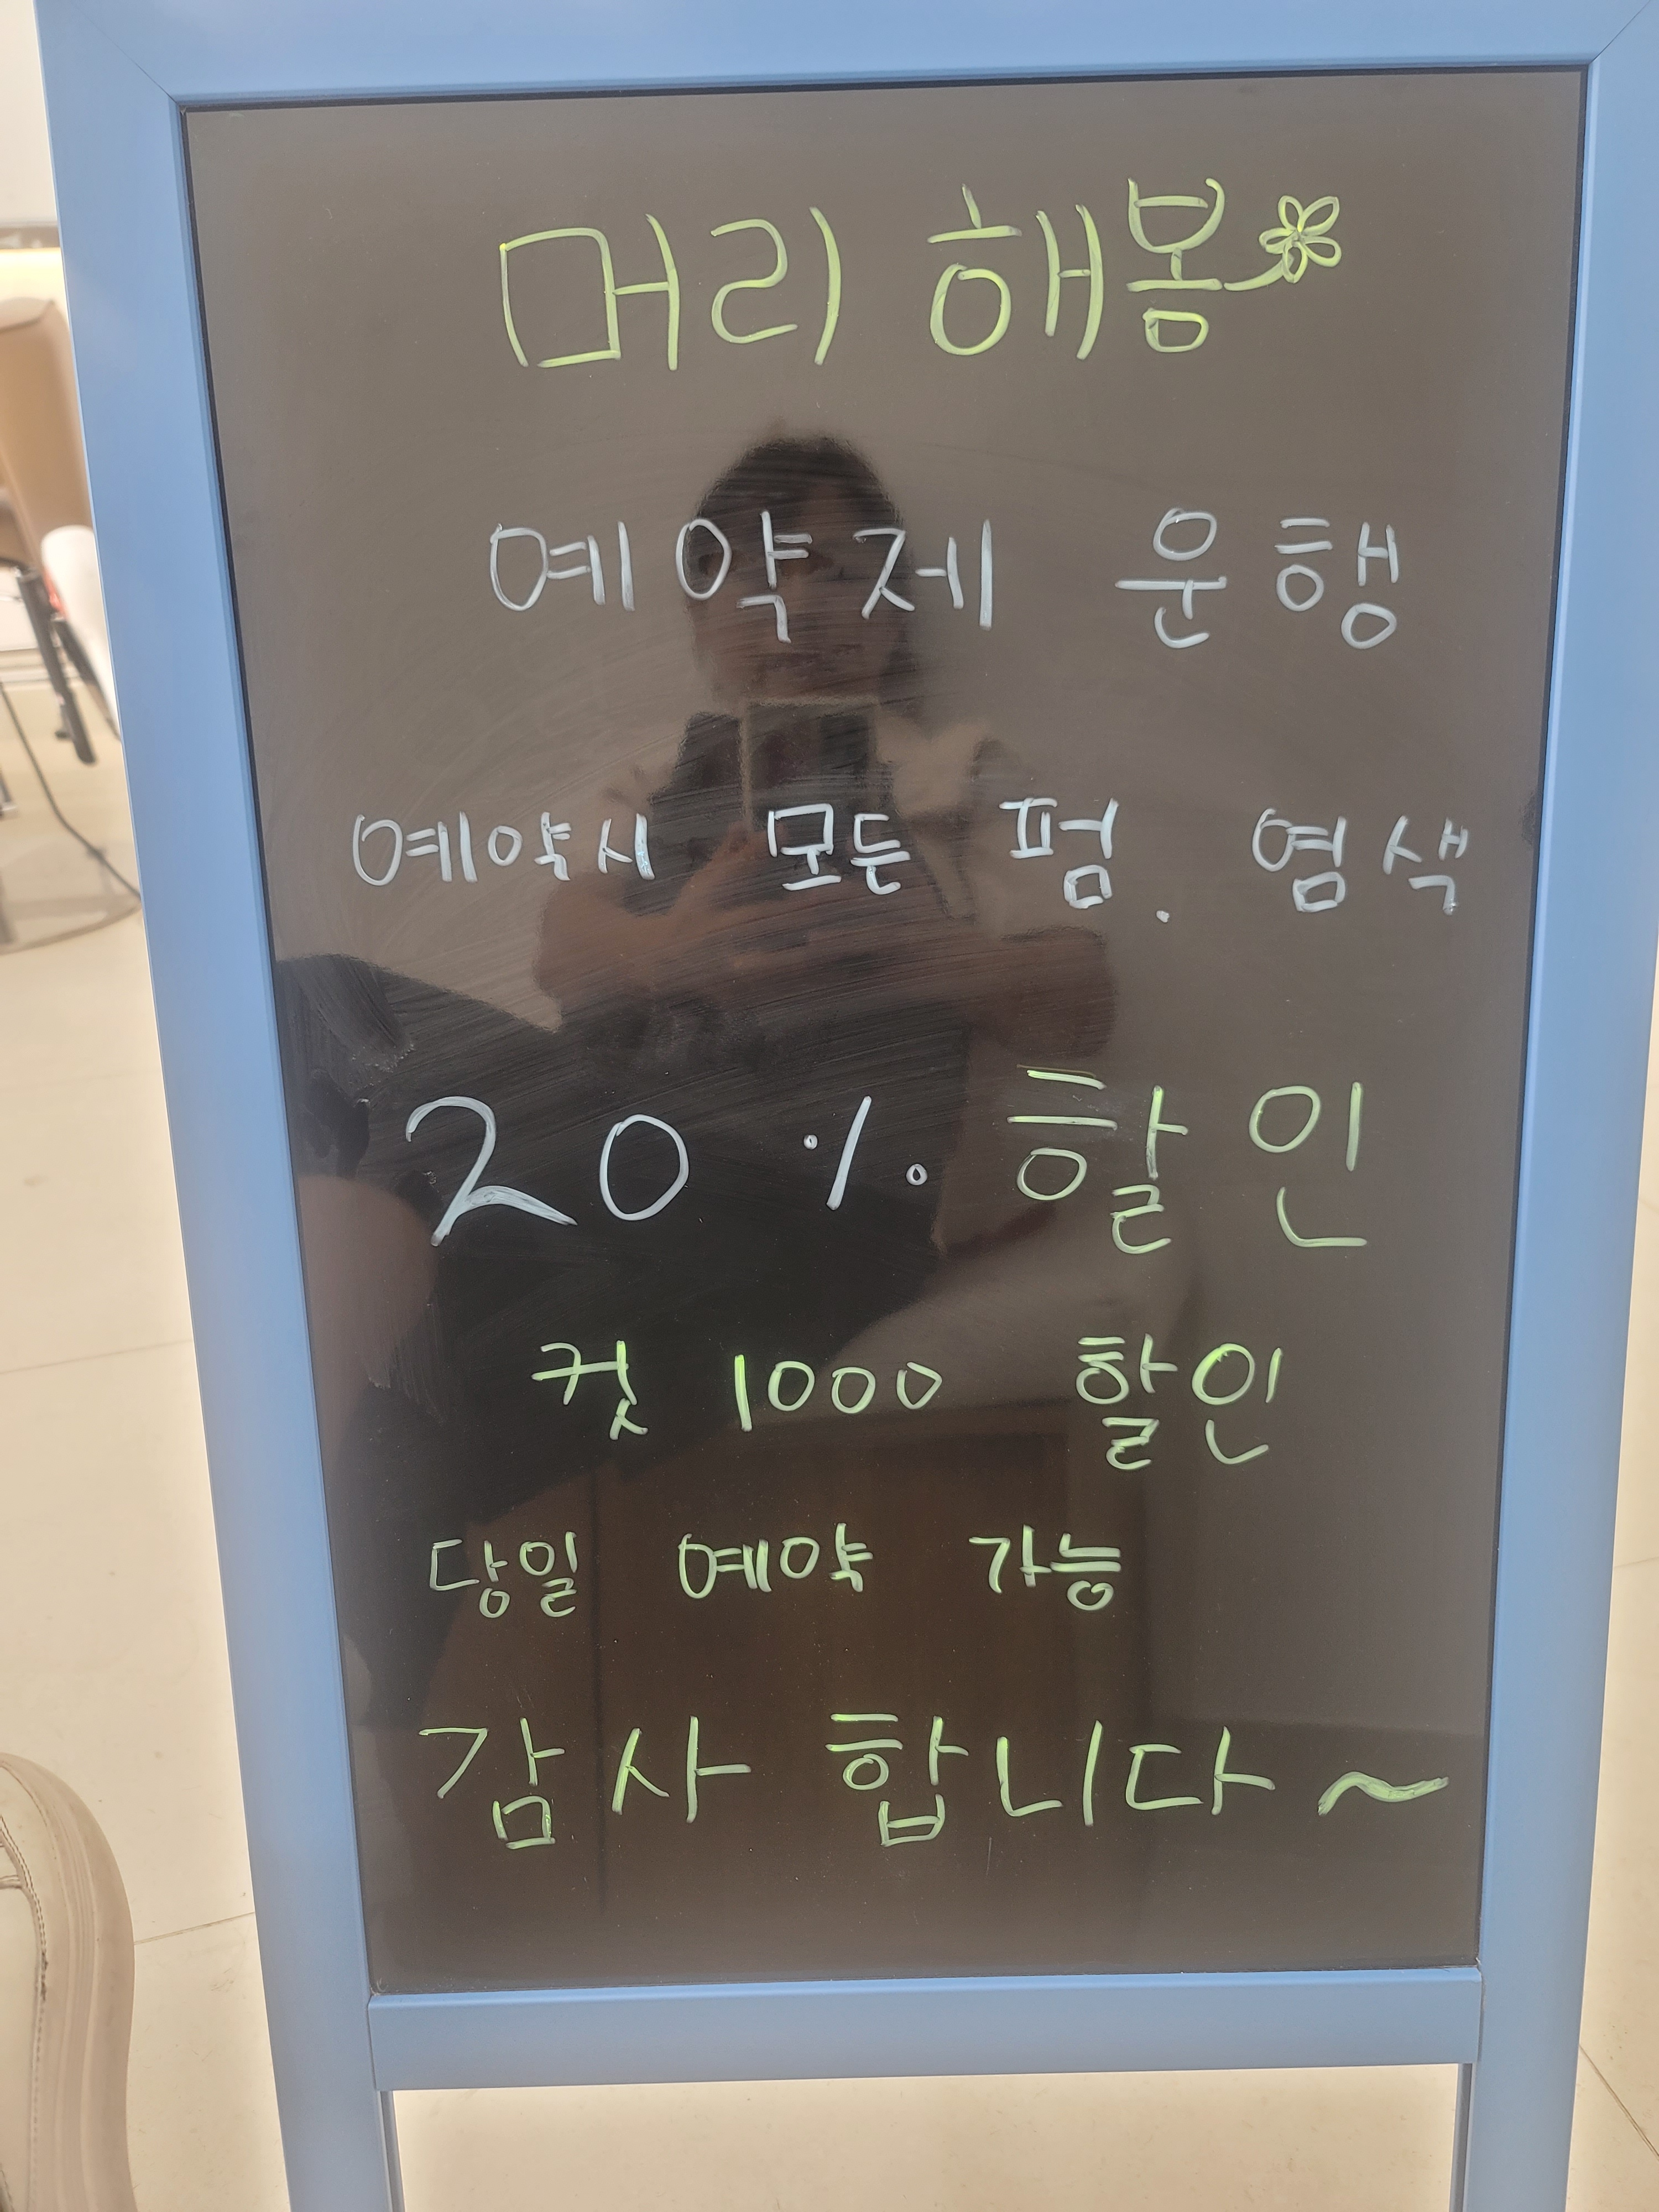 머리 해봄
예약제 운행
예약시 모든 펌. 염색
20% 할인
컷 1000 할인
당일 예약 가능
감사 합니다~